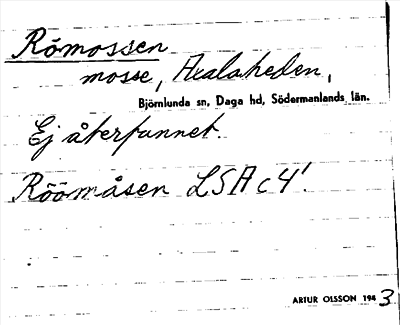 Römossen
mosse, Axalaheden,
Björnlunda sn, Daga hd, Södermanlands län.
Ej återfunnet.
Röömåsen LSA c4'.
ARTUR OLSSON 1943